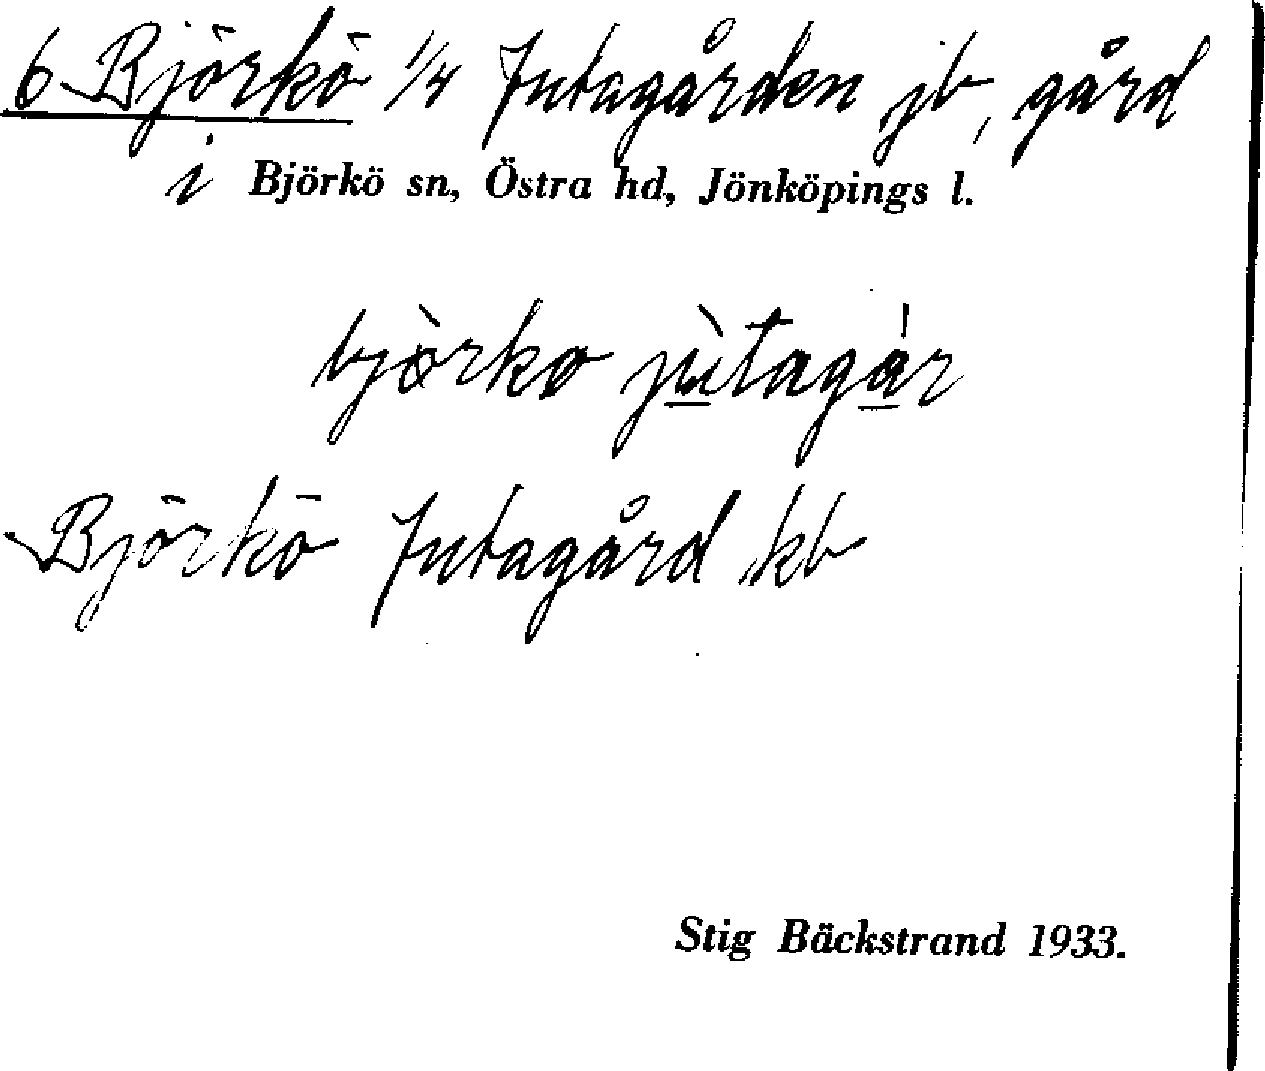 6 Björkö 1/4 Jutagården jb, gård
i Björkö sn, Östra hd, Jönköpings l.
bjòrkø jùtagár
Björkö Jutagård kb
Stig Bäckstrand 1933.